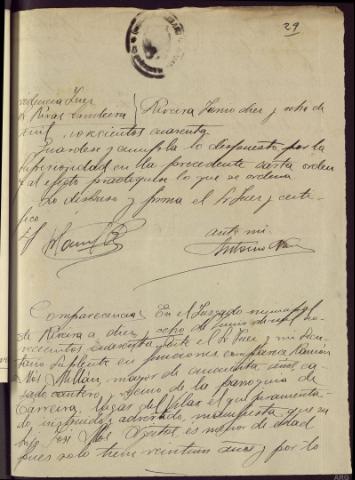 29
Providencia Juez
Sr Rivas Cundeira } Riveira Junio diez y ocho de
mil novecientos cuarenta.
Guardese y cumpla lo dispuesto por la
Superioridad en la precedente carta orden
y al efecto practiquese lo que se ordena
Lo dispuso y firma el Sr Juez y certi-
fico
ante mi
Antonio
Comparecencia: En el Juzgado municipal
de Riveira a diez y ocho de Junio de mil no-
vecientos cuarenta ante el Sr Juez y mi Secre-
tario Suplente en funciones comparece Ramón
Mos Millán, mayor de cincuenta años, ca-
sado, vecino de la parroquia de
Carreira, lugar del Vilar el que juramenta-
do instruido advertido, manifiesta que su
hijo José Mos es mayor de edad
pues solo tiene veintiun años y por lo